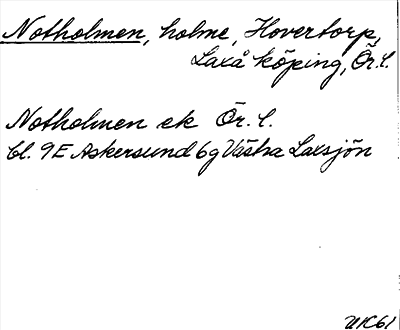 Notholmen, holme, Hovertorp,
Laxå köping, Ör. l.
Notholmen ek Ör. l.
bl. 9E Askersund 6g Västra Laxsjön
UK61